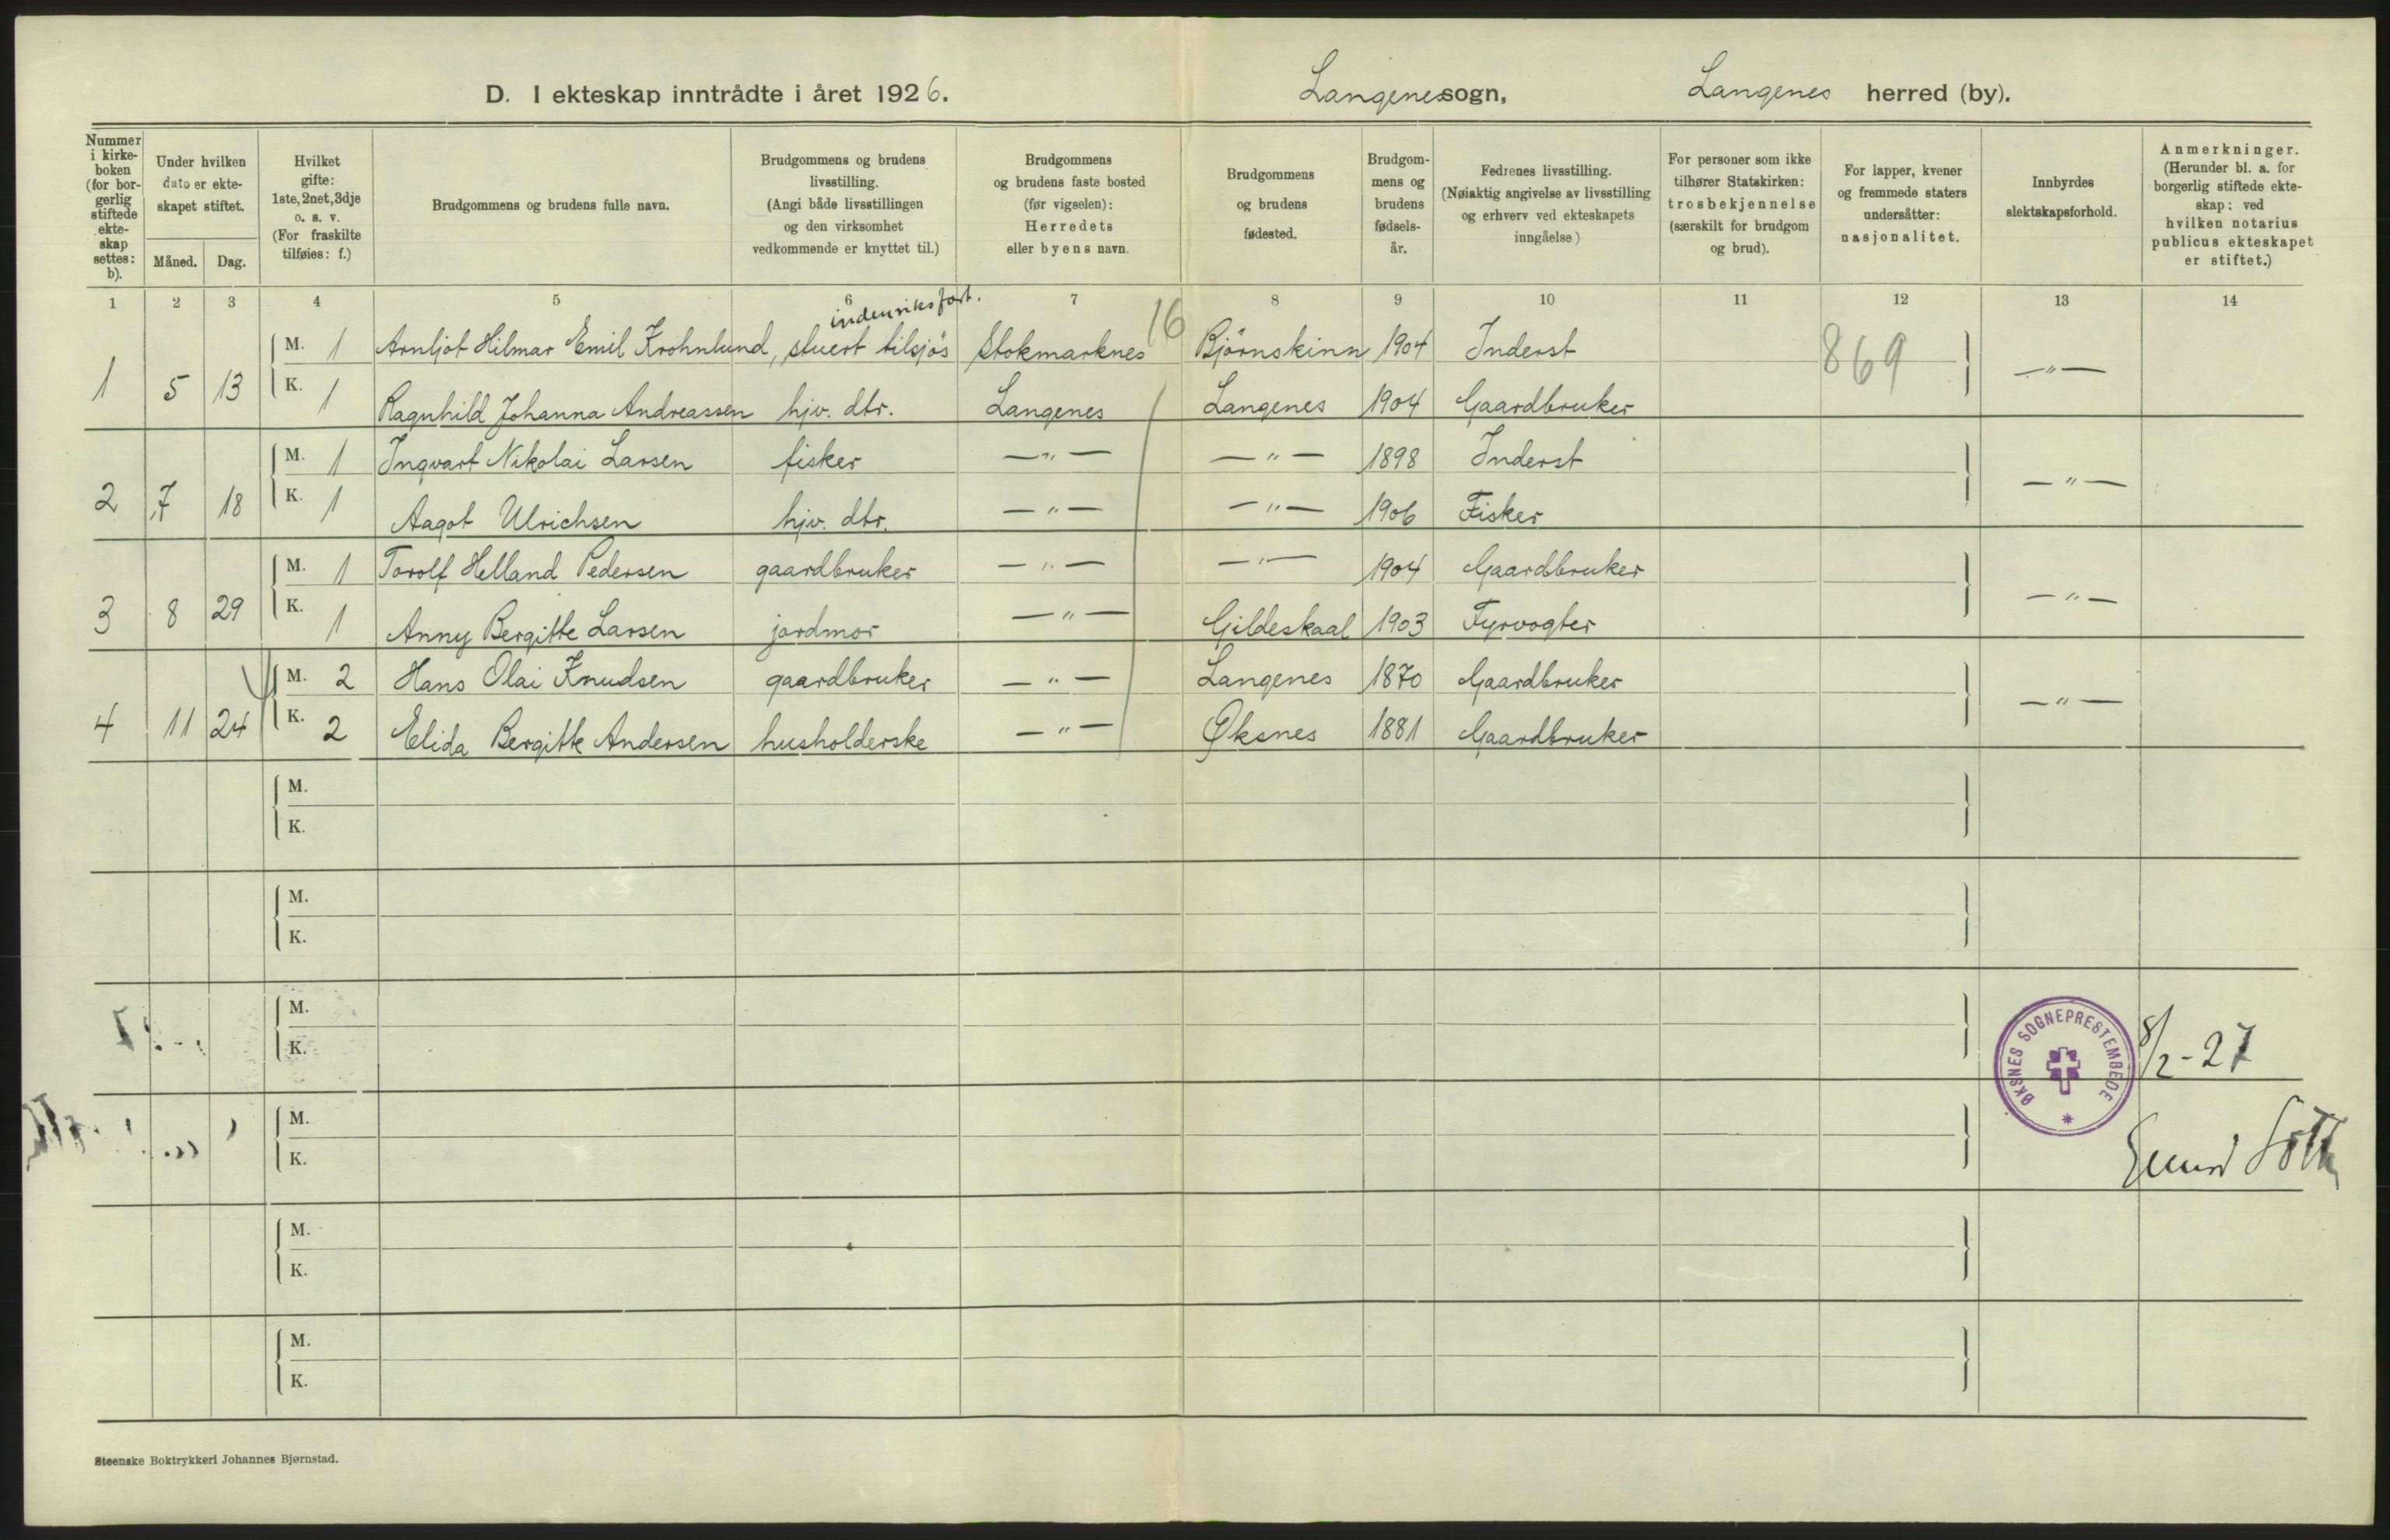 D. I ekteskap inntrådte i året 1926.
Langenes sogn,
Langenes herred (by).
Nummer
i kirke-
boken
(for bor-
gerlig
stiftede
ekte-
skap
settes:
b).
Under hvilken
dato er ekte-
skapet stiftet.
Måned. Dag.
Hvilket
gifte:
1ste, 2net, 3dje
o. s. v.
(For fraskilte
tilføies: f.)
Brudgommens og brudens fulle navn.
Brudgommens og brudens
livsstilling.
(Angi både livsstillingen
og den virksomhet
vedkommende er knyttet til.)
Brudgommens
og brudens faste bosted
(før vigselen):
Herredets
eller byens navn.
Brudgommens
og brudens
fødested.
Brudgom-
mens og
brudens
fødsels-
år.
Fedrenes livsstilling.
(Nøiaktig angivelse av livsstilling
og erhverv ved ekteskapets
inngåelse)
For personer som ikke
tilhører Statskirken:
trosbekjennelse
(særskilt for brudgom
og brud).
For lapper, kvener
og fremmede staters
undersåtter:
nasjonalitet.
Innbyrdes
slektskapsforhold.
Anmerkninger.
(Herunder bl. a. for
borgerlig stiftede ekte-
skap: ved
hvilken notarius
publicus ekteskapet
er stiftet.)
1 2 3 4 5 6 7 8 9 10 11 12 13 14
indenriksfart.
16
M. 1 Arnljot Hilmar Emil Krohnlund, stuert tilsjøs Stokmarknes Bjørnskinn 1904 Inderst 869
1 5 13 K. 1 Ragnhild Johanna Andreassen hjv. dtr. Langenes Langenes 1904 Gaardbruker —"—
M. 1 Ingvart Nikolai Larsen fisker —"— —"— 1898 Inderst
2 7 18 K. 1 Aagot Ulrichsen hjv. dtr. —"— —"— 1906 Fisker —"—
M. 1 Torolf Helland Pedersen gaardbruker —"— —"— 1904 Gaardbruker
3 8 29 K. 1 Anny Bergitte Larsen jordmor —"— Gildeskaal 1903 Fyrvogter —"—
M. 2 Hans Olai Knudsen gaardbruker —"— Langenes 1870 Gaardbruker
4 11 24 K. 2 Elida Bergitte Andersen husholderske —"— Øksnes 1881 Gaardbruker —"—
M.
K.
M.
K.
M.
K.
ØKSNES SOGNEPRESTEMBEDE
8/2-27
M.
K.
M.
K.
M.
K.
Steenske Boktrykkeri Johannes Bjørnstad.